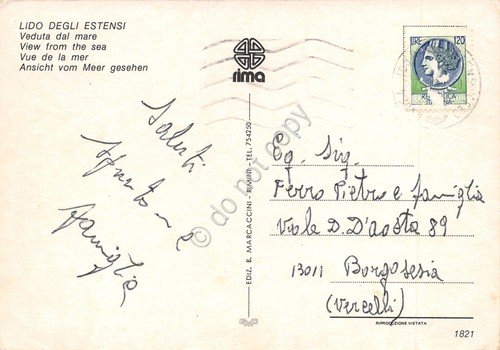 LIDO DEGLI ESTENSI
Veduta dal mare
View from the sea
Vue de la mer
Ansicht vom Meer gesehen
rima
LIRE 120
Saluti
famiglia
EDIZ. B. MARCACCINI - RIMINI - TEL. 754250
do not copy
Eg. Sig.
Ferro Pietro e famiglia
Viale D. D'aosta 89
13011 Borgosesia
(Vercelli)
RIPRODUZIONE VIETATA
1821